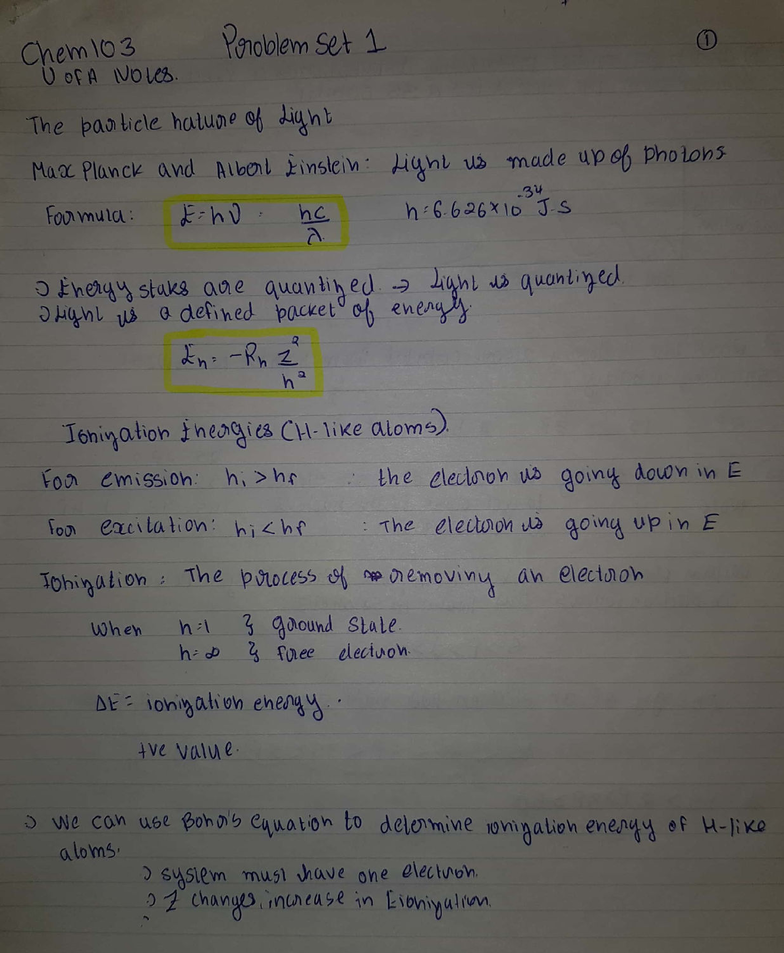 Chem103 Problem Set 1 ①
U of A Notes.
The particle nature of light
Max Planck and Albert Einstein: Light is made up of photons
Formula: E=hν = hc/λ h=6.626×10⁻³⁴ J.S
Energy states are quantized → Light is quantized.
Light is a defined packet of energy.
Eₙ = -Rₕ Z²/n²
Ionization Energies (H-like atoms).
For emission: nᵢ > n_f : the electron is going down in E
For excitation: nᵢ < n_f : The electron is going up in E
Ionization: The process of removing an electron
When n=1 } ground state.
n=∞ } free electron.
ΔE = ionization energy.
+ve value.
We can use Bohr's equation to determine ionization energy of H-like
atoms.
system must have one electron.
Z changes, increase in Eionization.